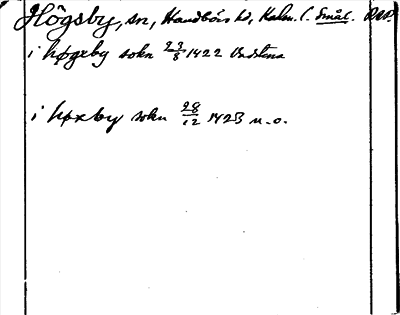 Högsby, sn, Handbörds hd, Kalm. l. Smål.
i høgxby sokn 23/8 1422 Vadstena
i høxby sokn 28/12 1423 n.o.